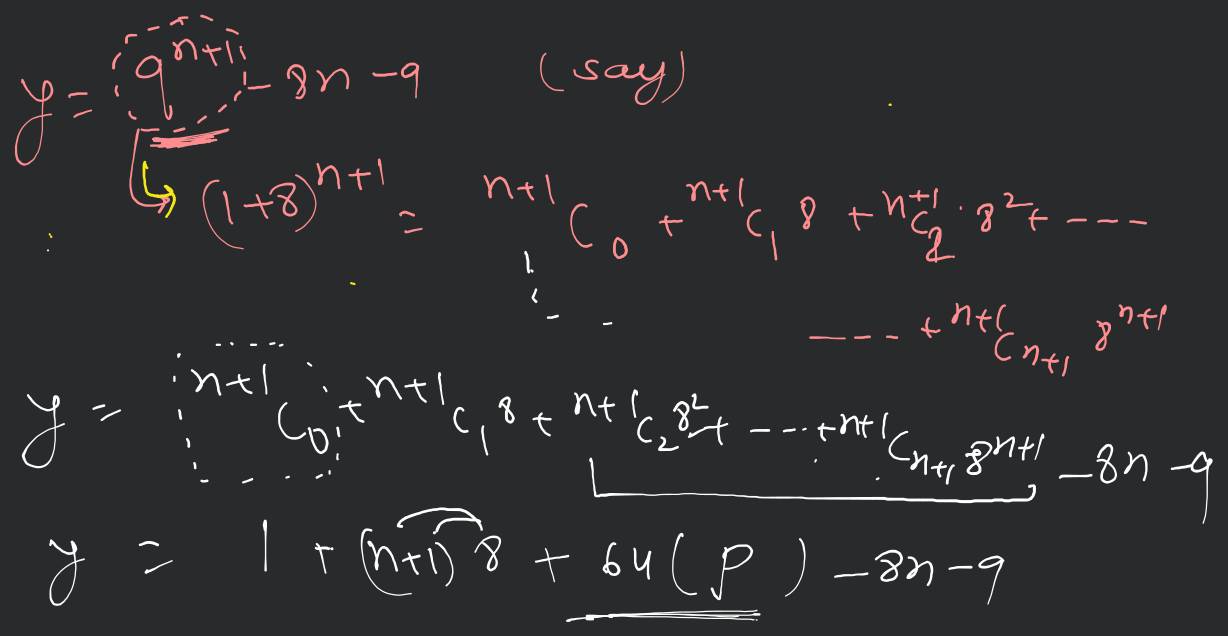 y = 9^{n+1} - 8n - 9 (say)
(1+8)^{n+1} = ^{n+1}C_0 + ^{n+1}C_1 8 + ^{n+1}C_2 · 8^2 + ---
---- + ^{n+1}C_{n+1} 8^{n+1}
y = ^{n+1}C_0 + ^{n+1}C_1 8 + ^{n+1}C_2 8^2 + --- + ^{n+1}C_{n+1} 8^{n+1} - 8n - 9
y = 1 + (n+1) 8 + 64 (P) - 8n - 9